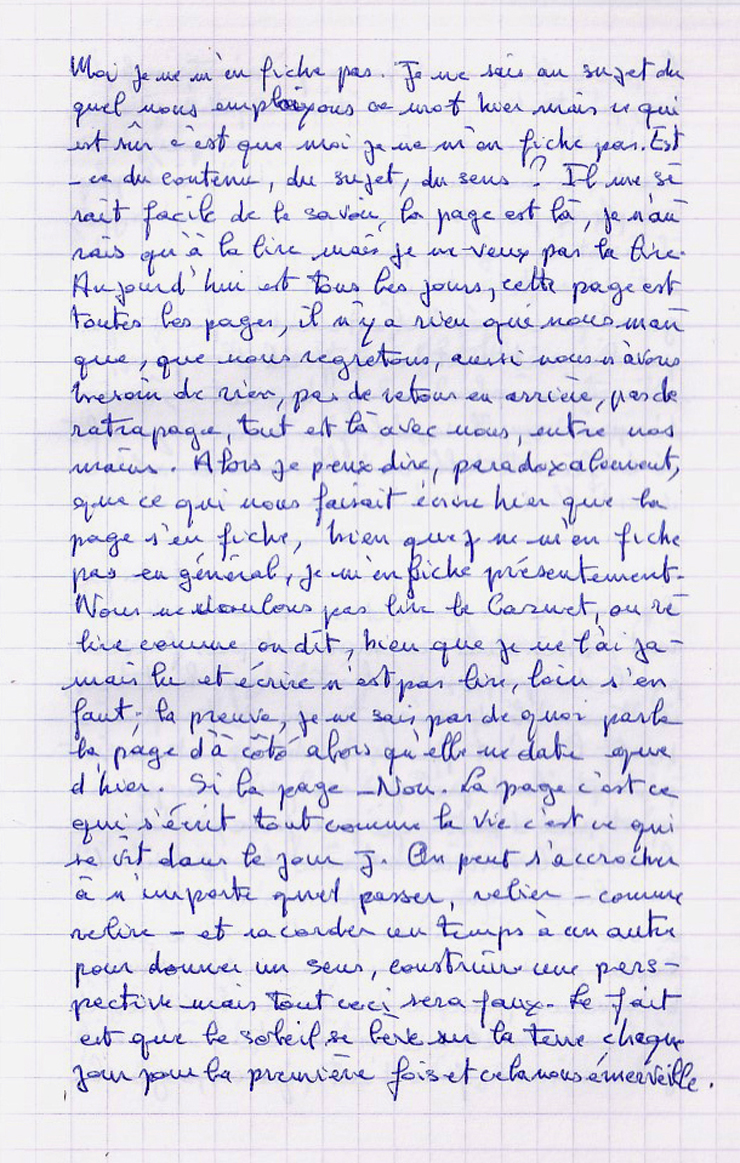 Moi je ne m'en fiche pas. Je ne sais au sujet du
quel nous employions ce mot hier mais ce qui
est sûr c'est que moi je ne m'en fiche pas. Est
-ce du contenu, du sujet, du sens ? Il me se
rait facile de le savoir, la page est là, je n'au
rais qu'à la lire mais je ne veux pas la lire.
Aujourd'hui est tous les jours, cette page est
toutes les pages, il n'y a rien qui nous man
que, que nous regretons, aussi nous n'avons
besoin de rien, pas de retour en arrière, pas de
ratrapage, tout est là avec nous, entre nos
mains. Alors je peux dire, paradoxalement,
que ce qui nous faisait écrire hier que la
page s'en fiche, bien que je ne m'en fiche
pas en général, je m'en fiche présentement.
Nous ne voulons pas lire le Carnet, ou re
lire comme on dit, bien que je ne l'ai ja-
mais lu et écrire n'est pas lire, loin s'en
faut ; la preuve, je ne sais pas de quoi parle
la page d'à côté alors qu'elle ne date que
d'hier. Si la page - Non. La page c'est ce
qui s'écrit tout comme la vie c'est ce qui
se vit dans le jour J. On peut s'accrocher
à n'importe quel passer, relier - comme
relire - et racorder un temps à un autre
pour donner un sens, construire une pers-
pective mais tout ceci sera faux. Le fait
est que le soleil se lève sur la terre chaque
jour pour la première fois et cela nous émerveille.